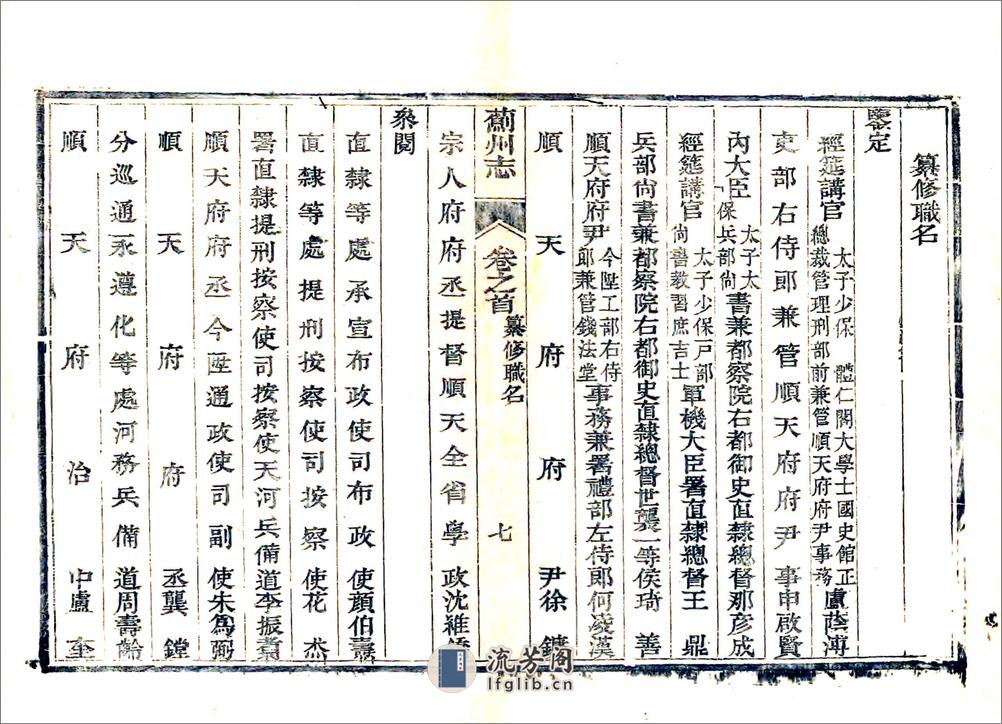 纂修職名
鑒定
經筵講官太子少保體仁閣大學士國史館正總裁管理刑部前兼管順天府府尹事務盧蔭溥
吏部右侍郎兼管順天府府尹事申啟賢
內大臣太子太保兵部尚書兼都察院右都御史直隸總督那彥成
經筵講官太子少保戶部尚書教習庶吉士軍機大臣署直隸總督王鼎
兵部尚書兼都察院右都御史直隸總督世襲一等侯琦善
順天府府尹今陞工部右侍郎兼管錢法堂事務兼署禮部左侍郎何凌漢
順天府府尹徐鏞
薊州志 卷之首 纂修職名 七
宗人府府丞提督順天全省學政沈維鐈
叅閱
直隸等處承宣布政使司布政使顏伯燾
直隸等處提刑按察使司按察使花杰
署直隸提刑按察使司按察使天河兵備道李振翥
順天府府丞今陞通政使司副使朱為弼
順天府府丞龔鏜
分巡通永遵化等處河務兵備道周壽齡
順天府治中盧奎
流芳閣
lfglib.cn